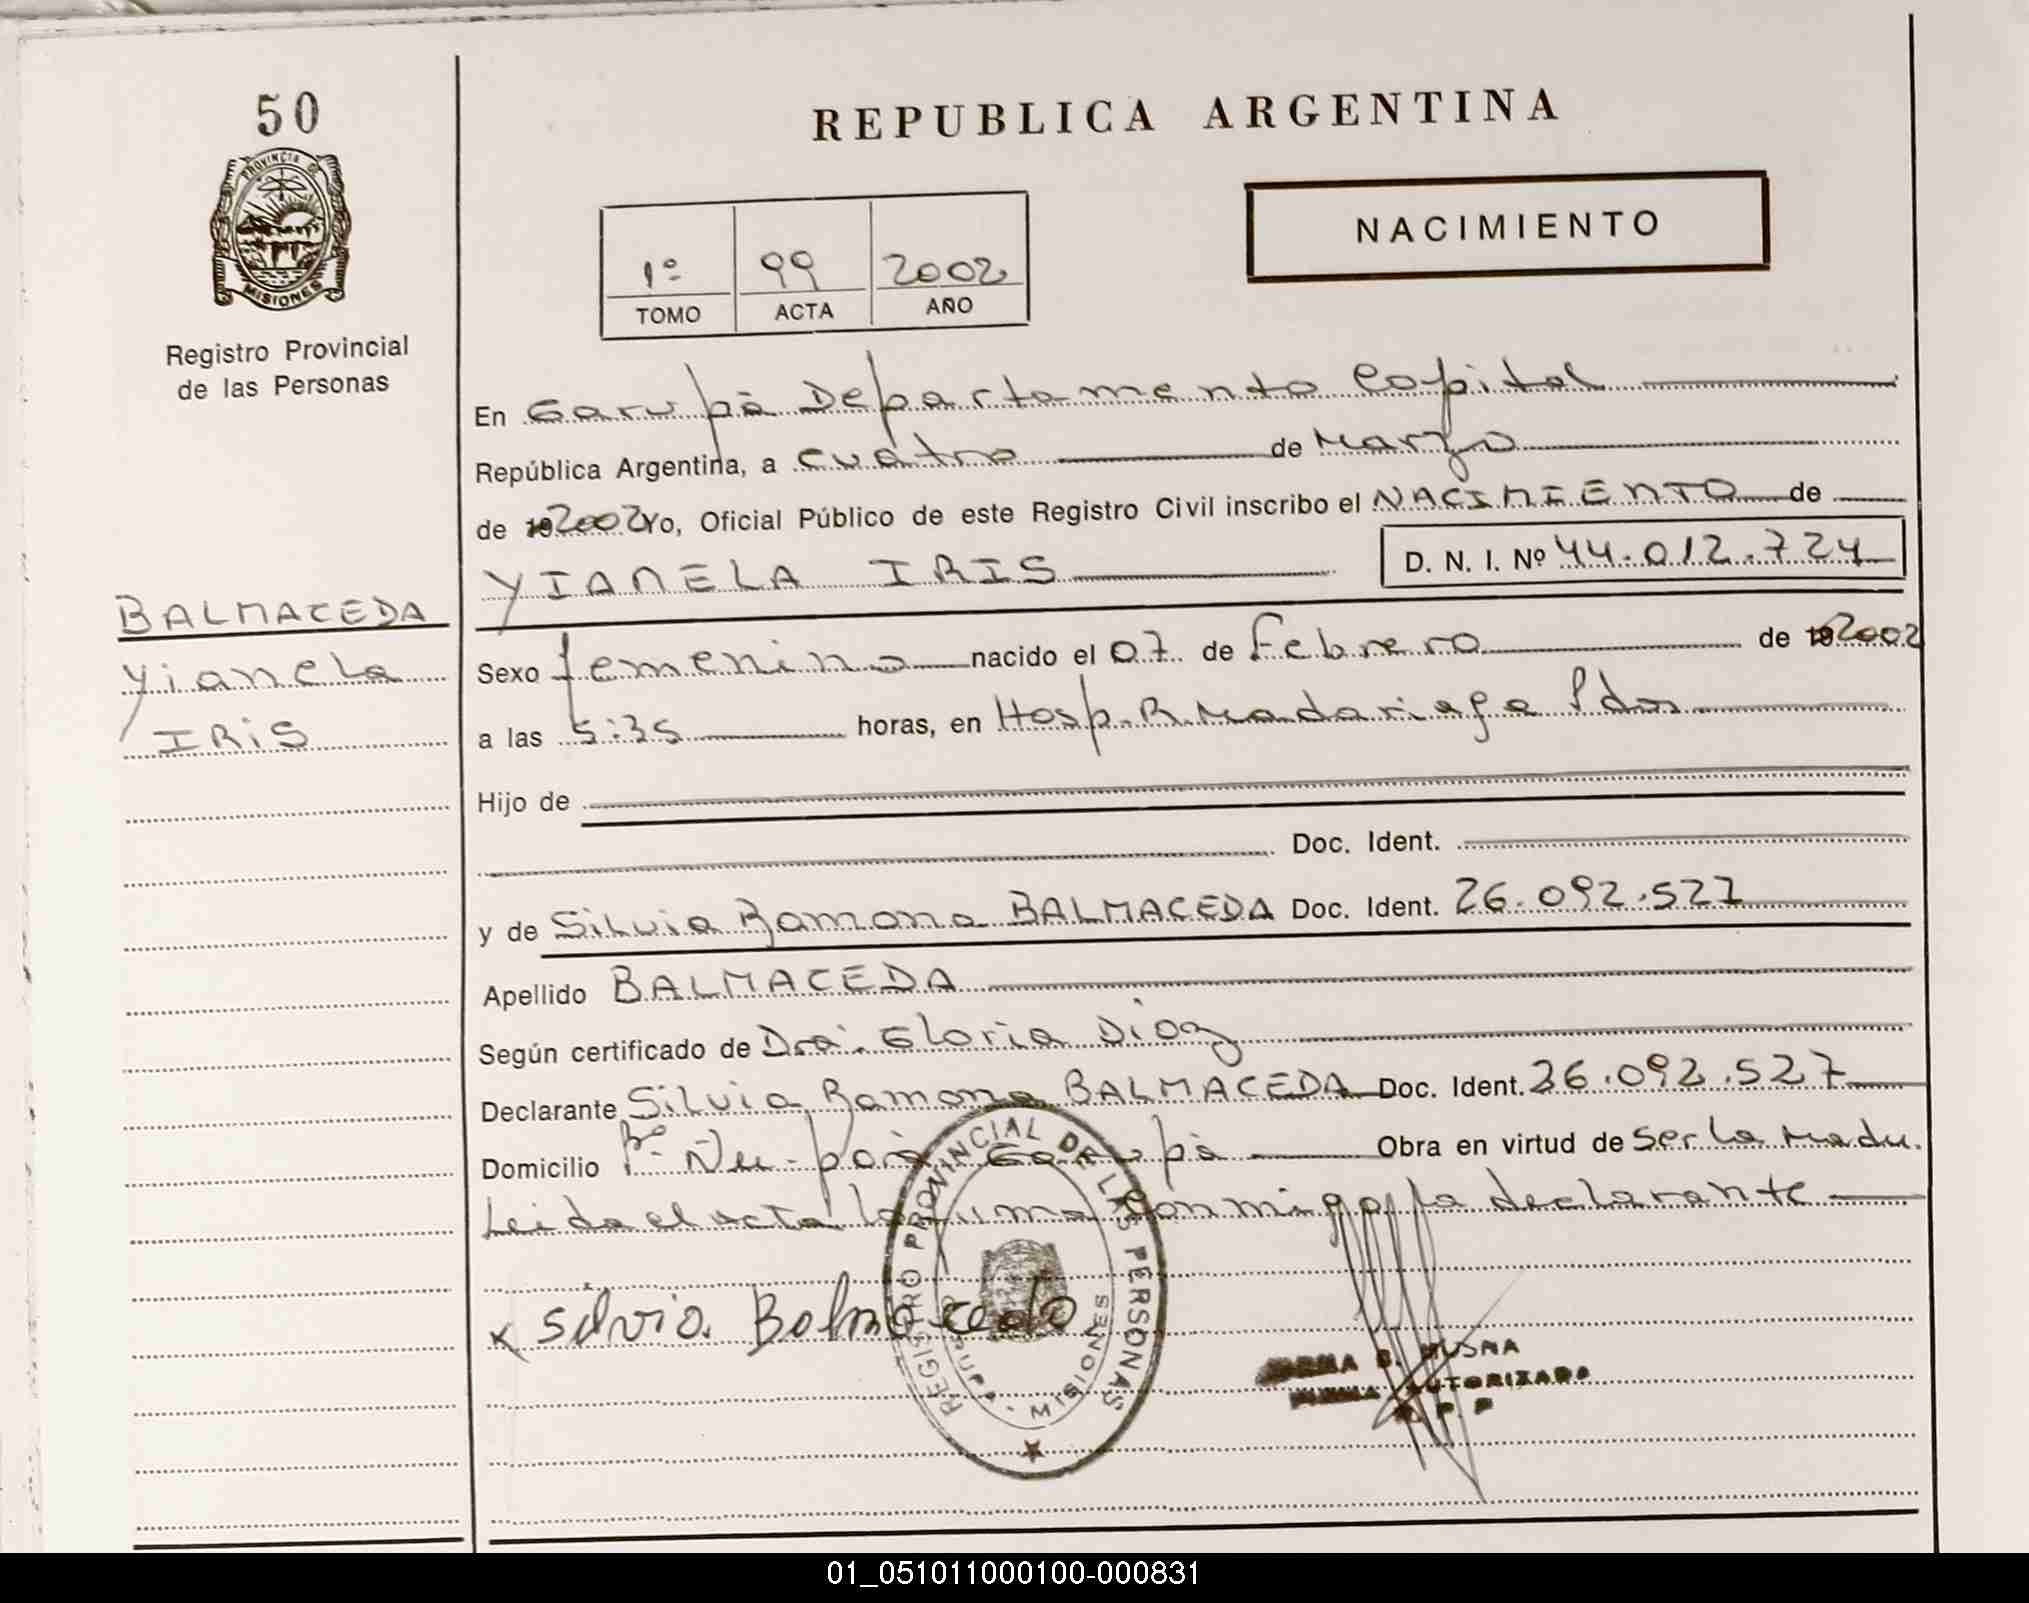 50
PROVINCIA DE
MISIONES
Registro Provincial
de las Personas
REPUBLICA ARGENTINA
NACIMIENTO
1º 99 2002
TOMO ACTA AÑO
En Garupá Departamento Capital
República Argentina, a cuatro de Marzo
de 192002 Yo, Oficial Público de este Registro Civil inscribo el NACIMIENTO de
YIANELA IRIS D. N. I. Nº 44.012.724
BALMACEDA
Yianela
IRiS
Sexo femenino nacido el 07 de Febrero de 192002
a las 5:35 horas, en Hosp. R. Madariaga Pdas
Hijo de
Doc. Ident.
y de Silvia Ramona BALMACEDA Doc. Ident. 26.092.527
Apellido BALMACEDA
Según certificado de Dra. Gloria Diaz
Declarante Silvia Ramona BALMACEDA Doc. Ident. 26.092.527
Domicilio Bº Ñu-porá Garupá Obra en virtud de Ser la Madre.
Leida el acta la firma conmigo la declarante
x Silvia Balmaceda
REGISTRO PROVINCIAL DE LAS PERSONAS
MISIONES
B. MUSNA
FIRMA AUTORIZADA
R. P. P
01_051011000100-000831